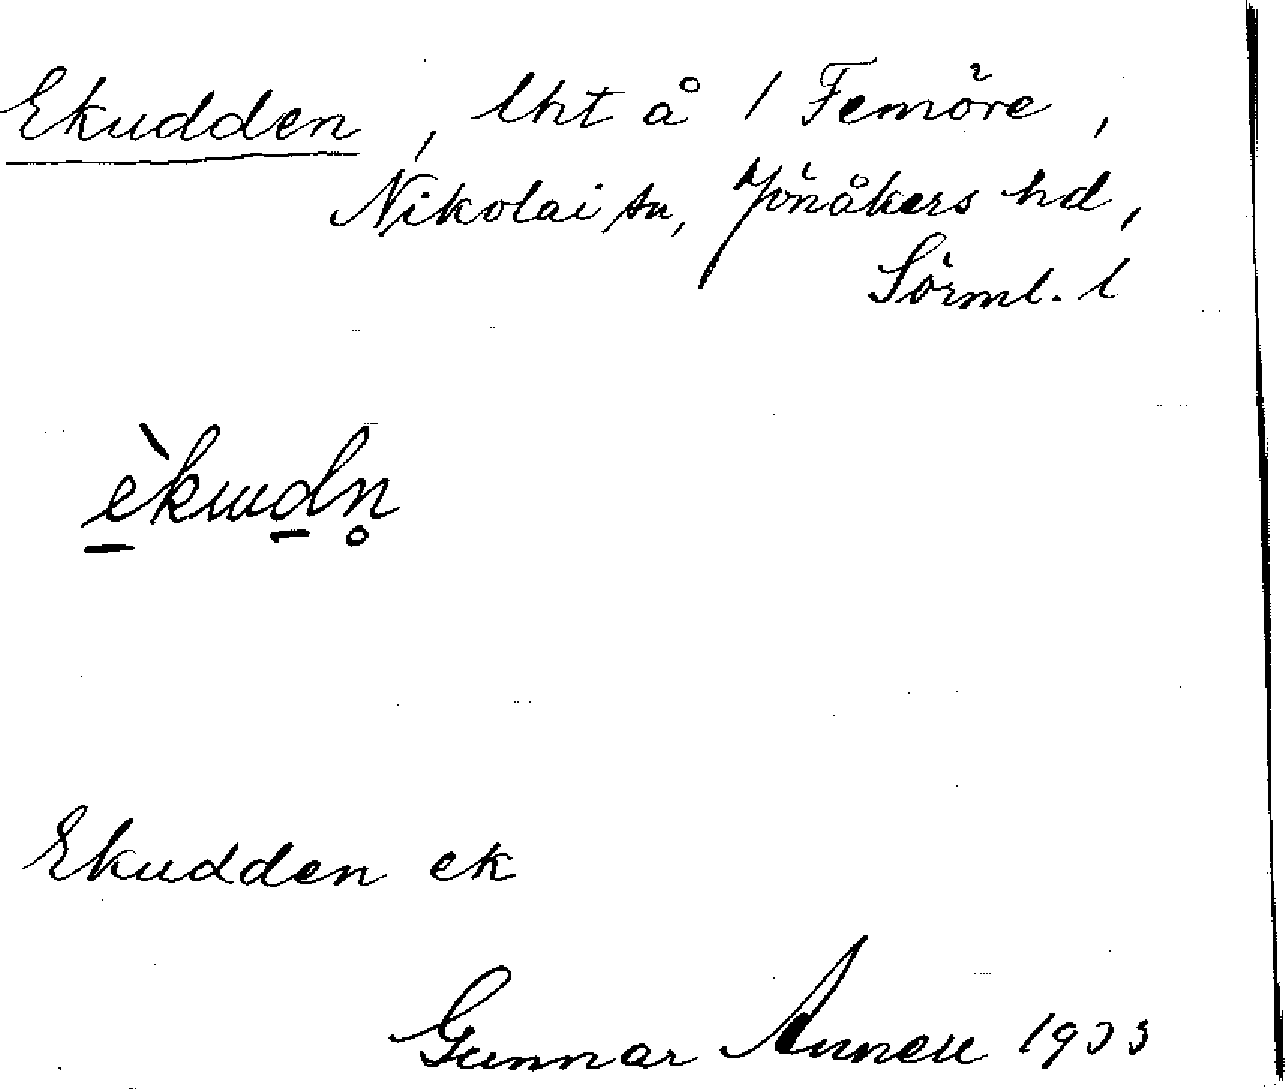 Ekudden, lht å 1 Femöre,
Nikolai sn, Jönåkers hd,
Sörml. l
èkudn̥
Ekudden ek
Gunnar Annell 1933